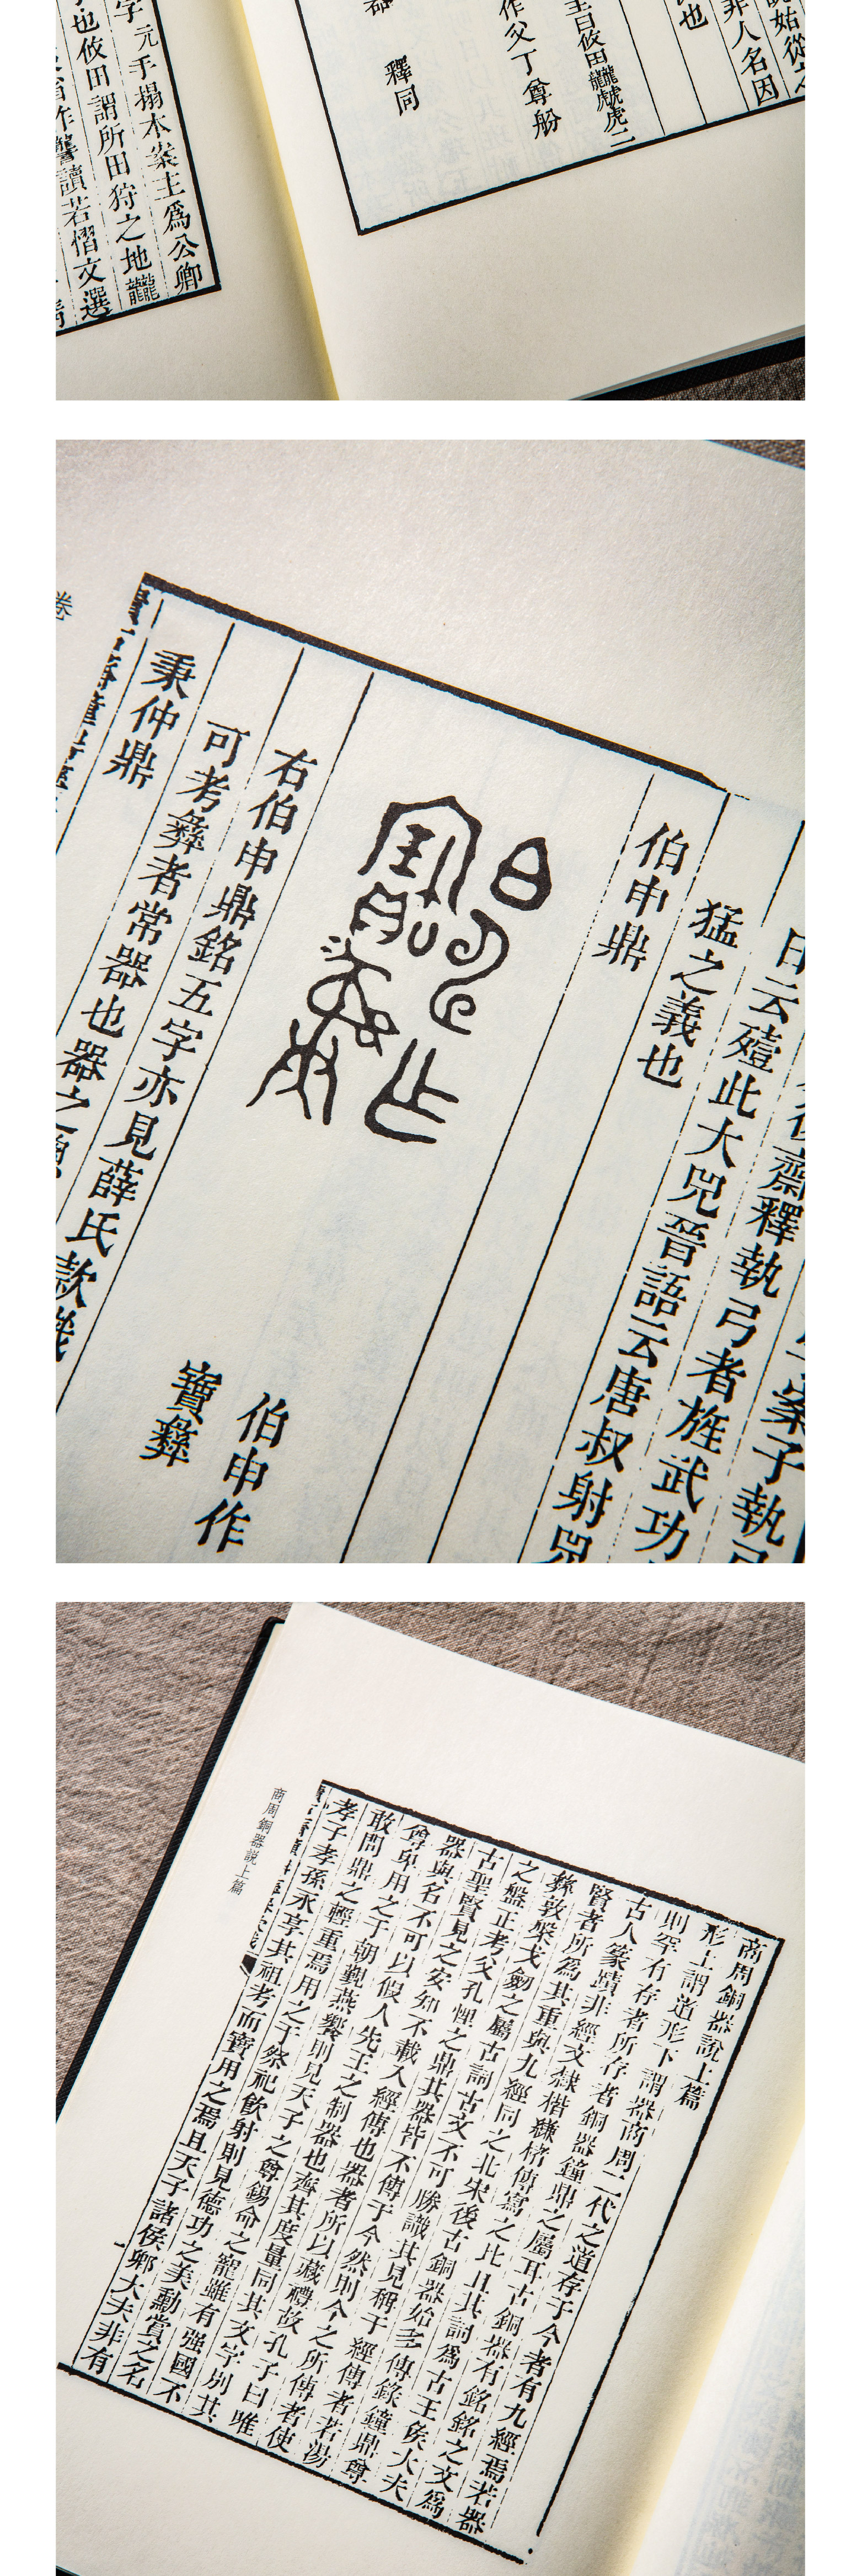 說始從之
非人名因
也
作父丁尊
釋同
元手搨本案主爲公卿
也攸田謂所田狩之地龖
讀若慴文選
案子執弓
齋釋執弓者旌武功
云殪此大兕晉語云唐叔射兕
猛之義也
伯申鼎
伯申作
寶彝
右伯申鼎銘五字亦見薛氏款識
可考彝者常器也器之
秉仲鼎
卷
商周銅器說上篇
形上謂道形下謂器商周二代之道存于今者有九經焉若器
則罕有存者所存者銅器鐘鼎之屬耳古銅器有銘銘之文爲
古人篆蹟非經文隸楷縑楮傳寫之比且其詞爲古王侯大夫
賢者所爲其重與九經同之北宋後古銅器始多傳錄鐘鼎尊
彝敦槃戈劍之屬古詞古文不可勝識其見稱于經傳者若湯
之盤正考父孔悝之鼎其器皆不傳于今然則今之所傳者使
古聖賢見之安知不載入經傳也器者所以藏禮故孔子曰唯
器與名不可以假人先王之制器也齊其度量同其文字別其
尊卑用之于朝覲燕饗則見天子之尊錫命之寵雖有强國不
敢問鼎之輕重焉用之于祭祀飲射則見德功之美勳賞之名
孝子孝孫永享其祖考而寶用之焉且天子諸侯卿大夫非有
商周銅器說上篇
一